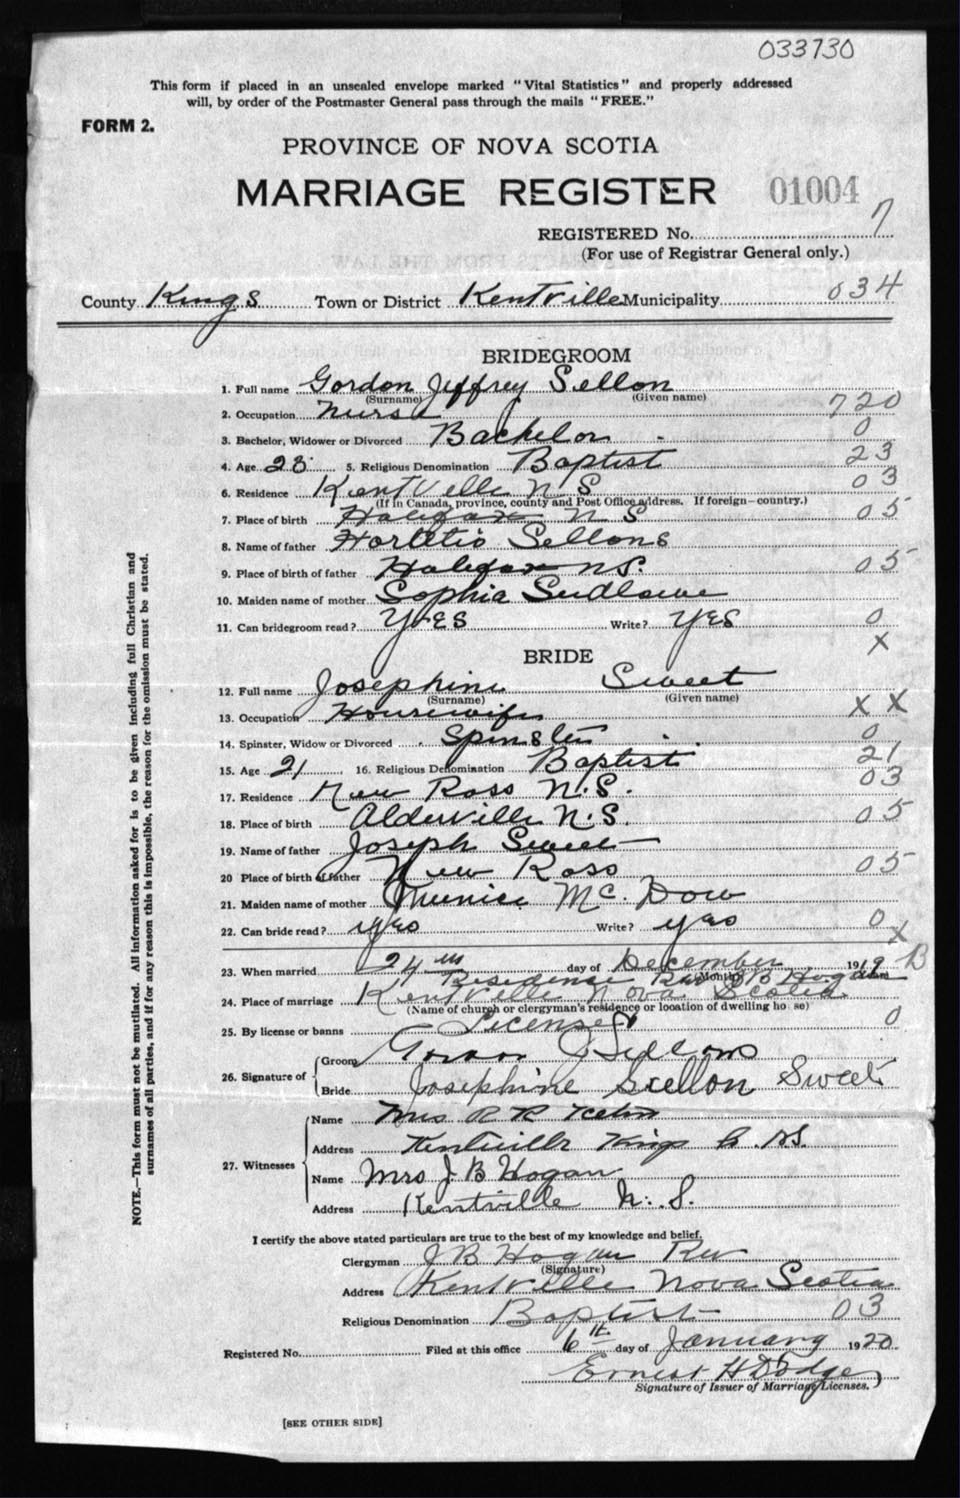 033730
This form if placed in an unsealed envelope marked "Vital Statistics" and properly addressed
will, by order of the Postmaster General pass through the mails "FREE."
FORM 2.
PROVINCE OF NOVA SCOTIA
MARRIAGE REGISTER 01004
REGISTERED No. 7
(For use of Registrar General only.)
County Kings Town or District Kentville Municipality 034
BRIDEGROOM
1. Full name Gordon Jeffrey Sellon
(Surname) (Given name)
2. Occupation Nurse 720
3. Bachelor, Widower or Divorced Bachelor 0
4. Age 23 5. Religious Denomination Baptist 23
6. Residence Kentville N S 03
(If in Canada, province, county and Post Office address. If foreign-country.)
7. Place of birth Halifax N S 05
8. Name of father Sellons
9. Place of birth of father Halifax N S. 05
10. Maiden name of mother Sophia
11. Can bridegroom read? YES Write? YES 0
X
BRIDE
12. Full name Josephine Sweet
(Surname) (Given name)
13. Occupation Housewife X X
14. Spinster, Widow or Divorced Spinster 0
15. Age 21 16. Religious Denomination Baptist 21
17. Residence New Ross N.S. 03
18. Place of birth Aldersville N.S. 05
19. Name of father Joseph Sweet
20 Place of birth of father New Ross 05
21. Maiden name of mother Mc Dow
22. Can bride read? yes Write? yes 0
X
23. When married 24th day of December 1919 B
(Month)
Residence Rev J B Hogan
24. Place of marriage Kentville Nova Scotia
(Name of church or clergyman's residence or location of dwelling house)
25. By license or banns License 0
26. Signature of
Groom Gordon J Sellons
Bride Josephine Sellon Sweet
27. Witnesses
Name Mrs R R
Address Kentville Kings Co. N.S.
Name Mrs J B Hogan
Address Kentville N. S.
I certify the above stated particulars are true to the best of my knowledge and belief.
Clergyman J B Hogan Rev
(Signature)
Address Kentville Nova Scotia
Religious Denomination Baptist 03
Registered No. Filed at this office 6th day of January 1920
Ernest H Dodge
Signature of Issuer of Marriage Licenses.
[SEE OTHER SIDE]
NOTE.—This form must not be mutilated. All information asked for is to be given including full Christian and
surnames of all parties, and if for any reason this is impossible, the reason for the omission must be stated.